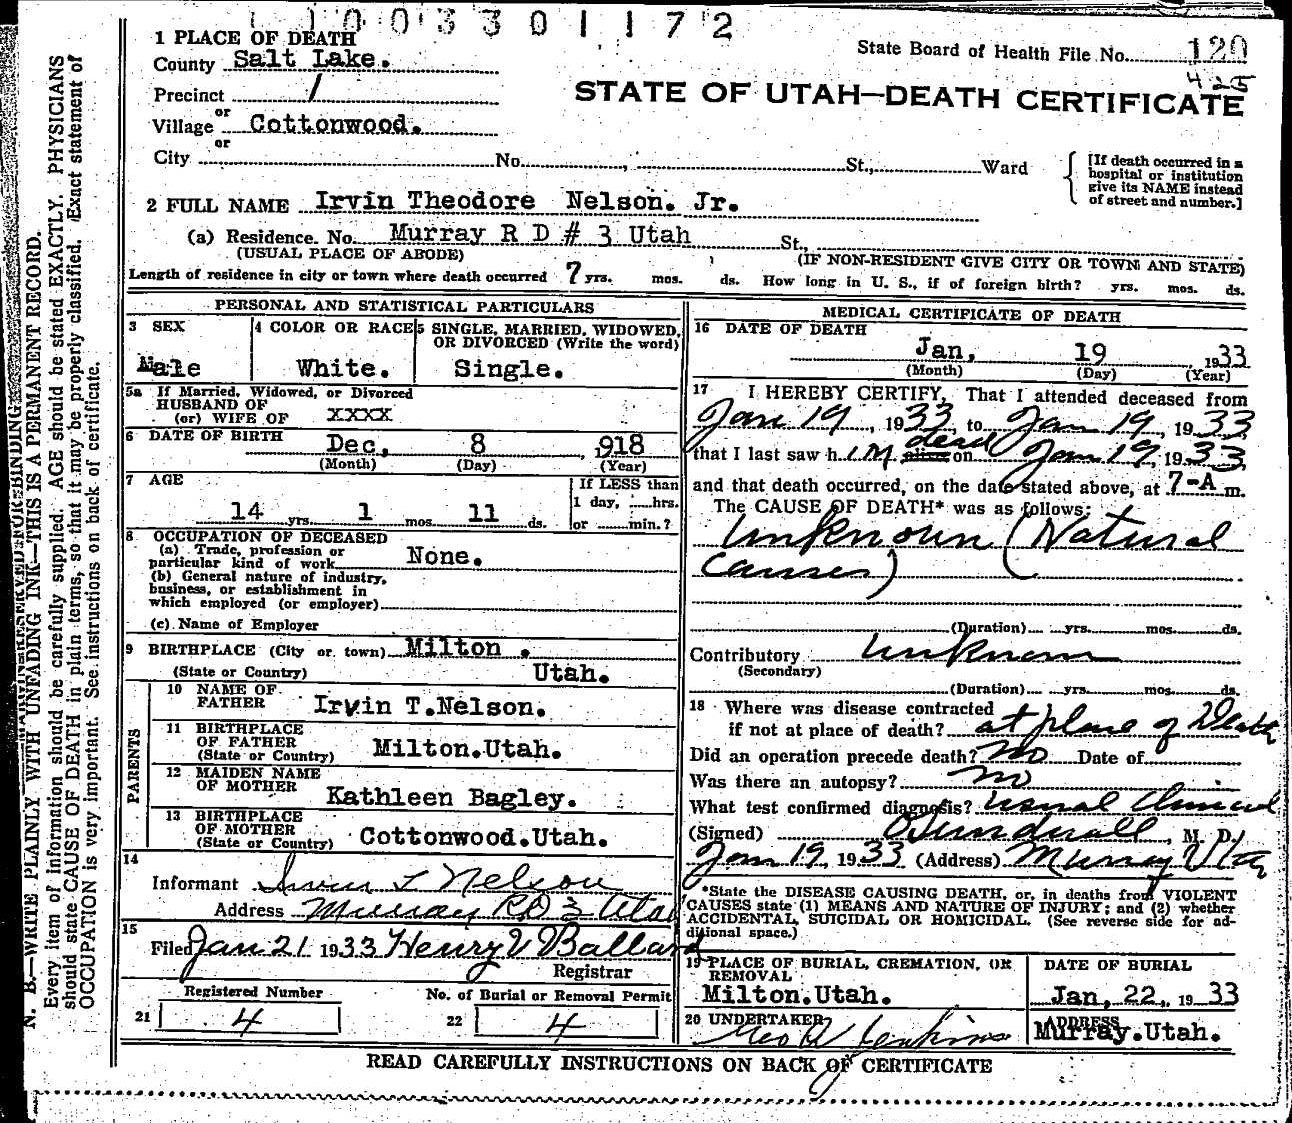 1 0 0 3 3 0 1 1 7 2
1 PLACE OF DEATH
State Board of Health File No. 120
425
County Salt Lake.
STATE OF UTAH—DEATH CERTIFICATE
Precinct /
or
Village Cottonwood.
or
City No. , St., Ward
[If death occurred in a
hospital or institution
give its NAME instead
of street and number.]
2 FULL NAME Irvin Theodore Nelson. Jr.
(a) Residence. No. Murray R D # 3 Utah St.,
(USUAL PLACE OF ABODE) (IF NON-RESIDENT GIVE CITY OR TOWN AND STATE)
Length of residence in city or town where death occurred 7 yrs. mos. ds. How long in U. S., if of foreign birth? yrs. mos. ds.
PERSONAL AND STATISTICAL PARTICULARS
3 SEX
Male
4 COLOR OR RACE
White.
5 SINGLE, MARRIED, WIDOWED,
OR DIVORCED (Write the word)
Single.
5a If Married, Widowed, or Divorced
HUSBAND OF
(or) WIFE OF XXXX
6 DATE OF BIRTH Dec, 8 , 918
(Month) (Day) (Year)
7 AGE
14 yrs. 1 mos. 11 ds.
If LESS than
1 day, hrs.
or min.?
8 OCCUPATION OF DECEASED
(a) Trade, profession or
particular kind of work None.
(b) General nature of industry,
business, or establishment in
which employed (or employer)
(c) Name of Employer
9 BIRTHPLACE (City or town) Milton .
(State or Country) Utah.
PARENTS
10 NAME OF
FATHER Irvin T.Nelson.
11 BIRTHPLACE
OF FATHER
(State or Country) Milton.Utah.
12 MAIDEN NAME
OF MOTHER Kathleen Bagley.
13 BIRTHPLACE
OF MOTHER
(State or Country) Cottonwood.Utah.
14
Informant Irvin T Nelson
Address Murray RD 3 Utah
15
Filed Jan 21 1933 Henry V Ballard
Registrar
Registered Number
21 4
No. of Burial or Removal Permit
22 4
MEDICAL CERTIFICATE OF DEATH
16 DATE OF DEATH
Jan, 19 , 1933
(Month) (Day) (Year)
17 I HEREBY CERTIFY, That I attended deceased from
Jan 19, 1933, to Jan 19, 1933
dead
that I last saw h im alive on Jan 19, 1933,
and that death occurred, on the date stated above, at 7-A m.
The CAUSE OF DEATH* was as follows:
Unknown (Natural
Causes)
(Duration) yrs. mos. ds.
Contributory Unknown
(Secondary)
(Duration) yrs. mos. ds.
18 Where was disease contracted
if not at place of death? at place of Death
Did an operation precede death? No Date of
Was there an autopsy? no
What test confirmed diagnosis? usual Clinical
(Signed) , M. D.
Jan 19, 1933 (Address) Murray Utah
*State the DISEASE CAUSING DEATH, or, in deaths from VIOLENT
CAUSES state (1) MEANS AND NATURE OF INJURY; and (2) whether
ACCIDENTAL, SUICIDAL OR HOMICIDAL. (See reverse side for ad-
ditional space.)
19 PLACE OF BURIAL, CREMATION, OR
REMOVAL
Milton.Utah.
DATE OF BURIAL
Jan, 22,. 1933
20 UNDERTAKER
Geo A Jenkins
ADDRESS
Murray.Utah.
READ CAREFULLY INSTRUCTIONS ON BACK OF CERTIFICATE
MARGIN RESERVED FOR BINDING
N. B.—WRITE PLAINLY WITH UNFADING INK—THIS IS A PERMANENT RECORD.
Every item of information should be carefully supplied. AGE should be stated EXACTLY. PHYSICIANS
should state CAUSE OF DEATH in plain terms, so that it may be properly classified. Exact statement of
OCCUPATION is very important. See instructions on back of certificate.